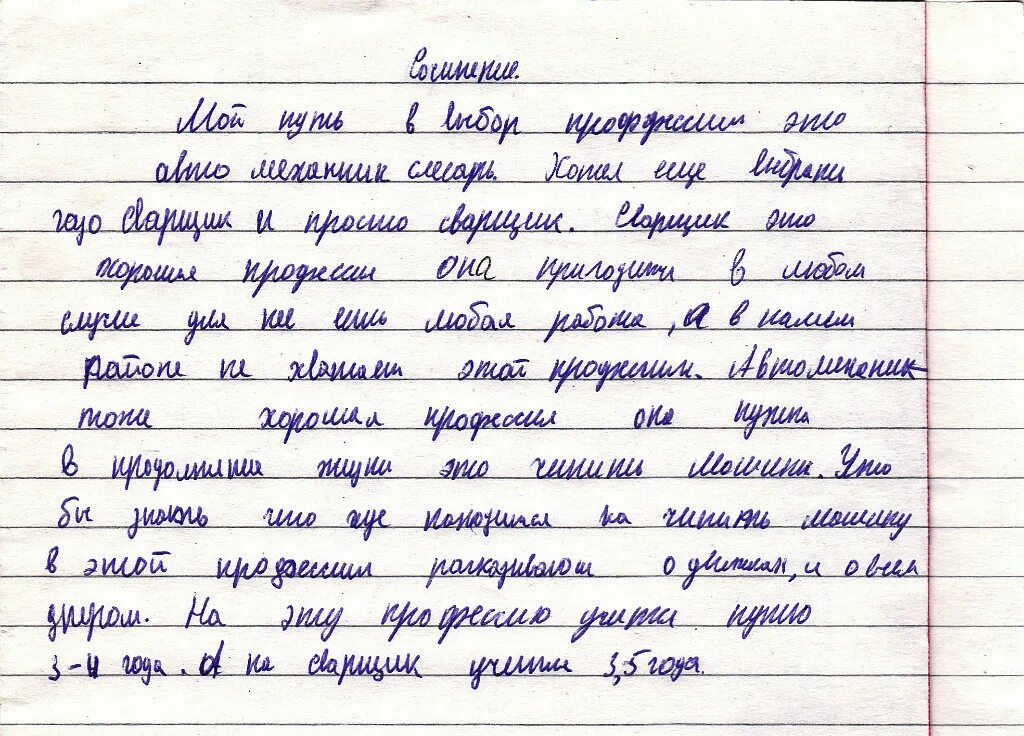 Сочинение.
Мой путь в выбор профжессии это
авто механник слесарь. Хотел еще выбрать
газо сварщик и просто сварщик. Сварщик это
хорошая профессия она пригодится в любом
случае для нее есть любая работа, а в нашем
районе не хватает этой профжессии. Автомеханник
тоже хорошая профессия она нужна
в продолжение жизни это чинить машины. Что
бы знать что где находится на чинить машину
в этой профжессии расказивают о движках, и о всем
другом. На эту профжессию учится нужно
3-4 года. А на сварщик учится 3,5 года.